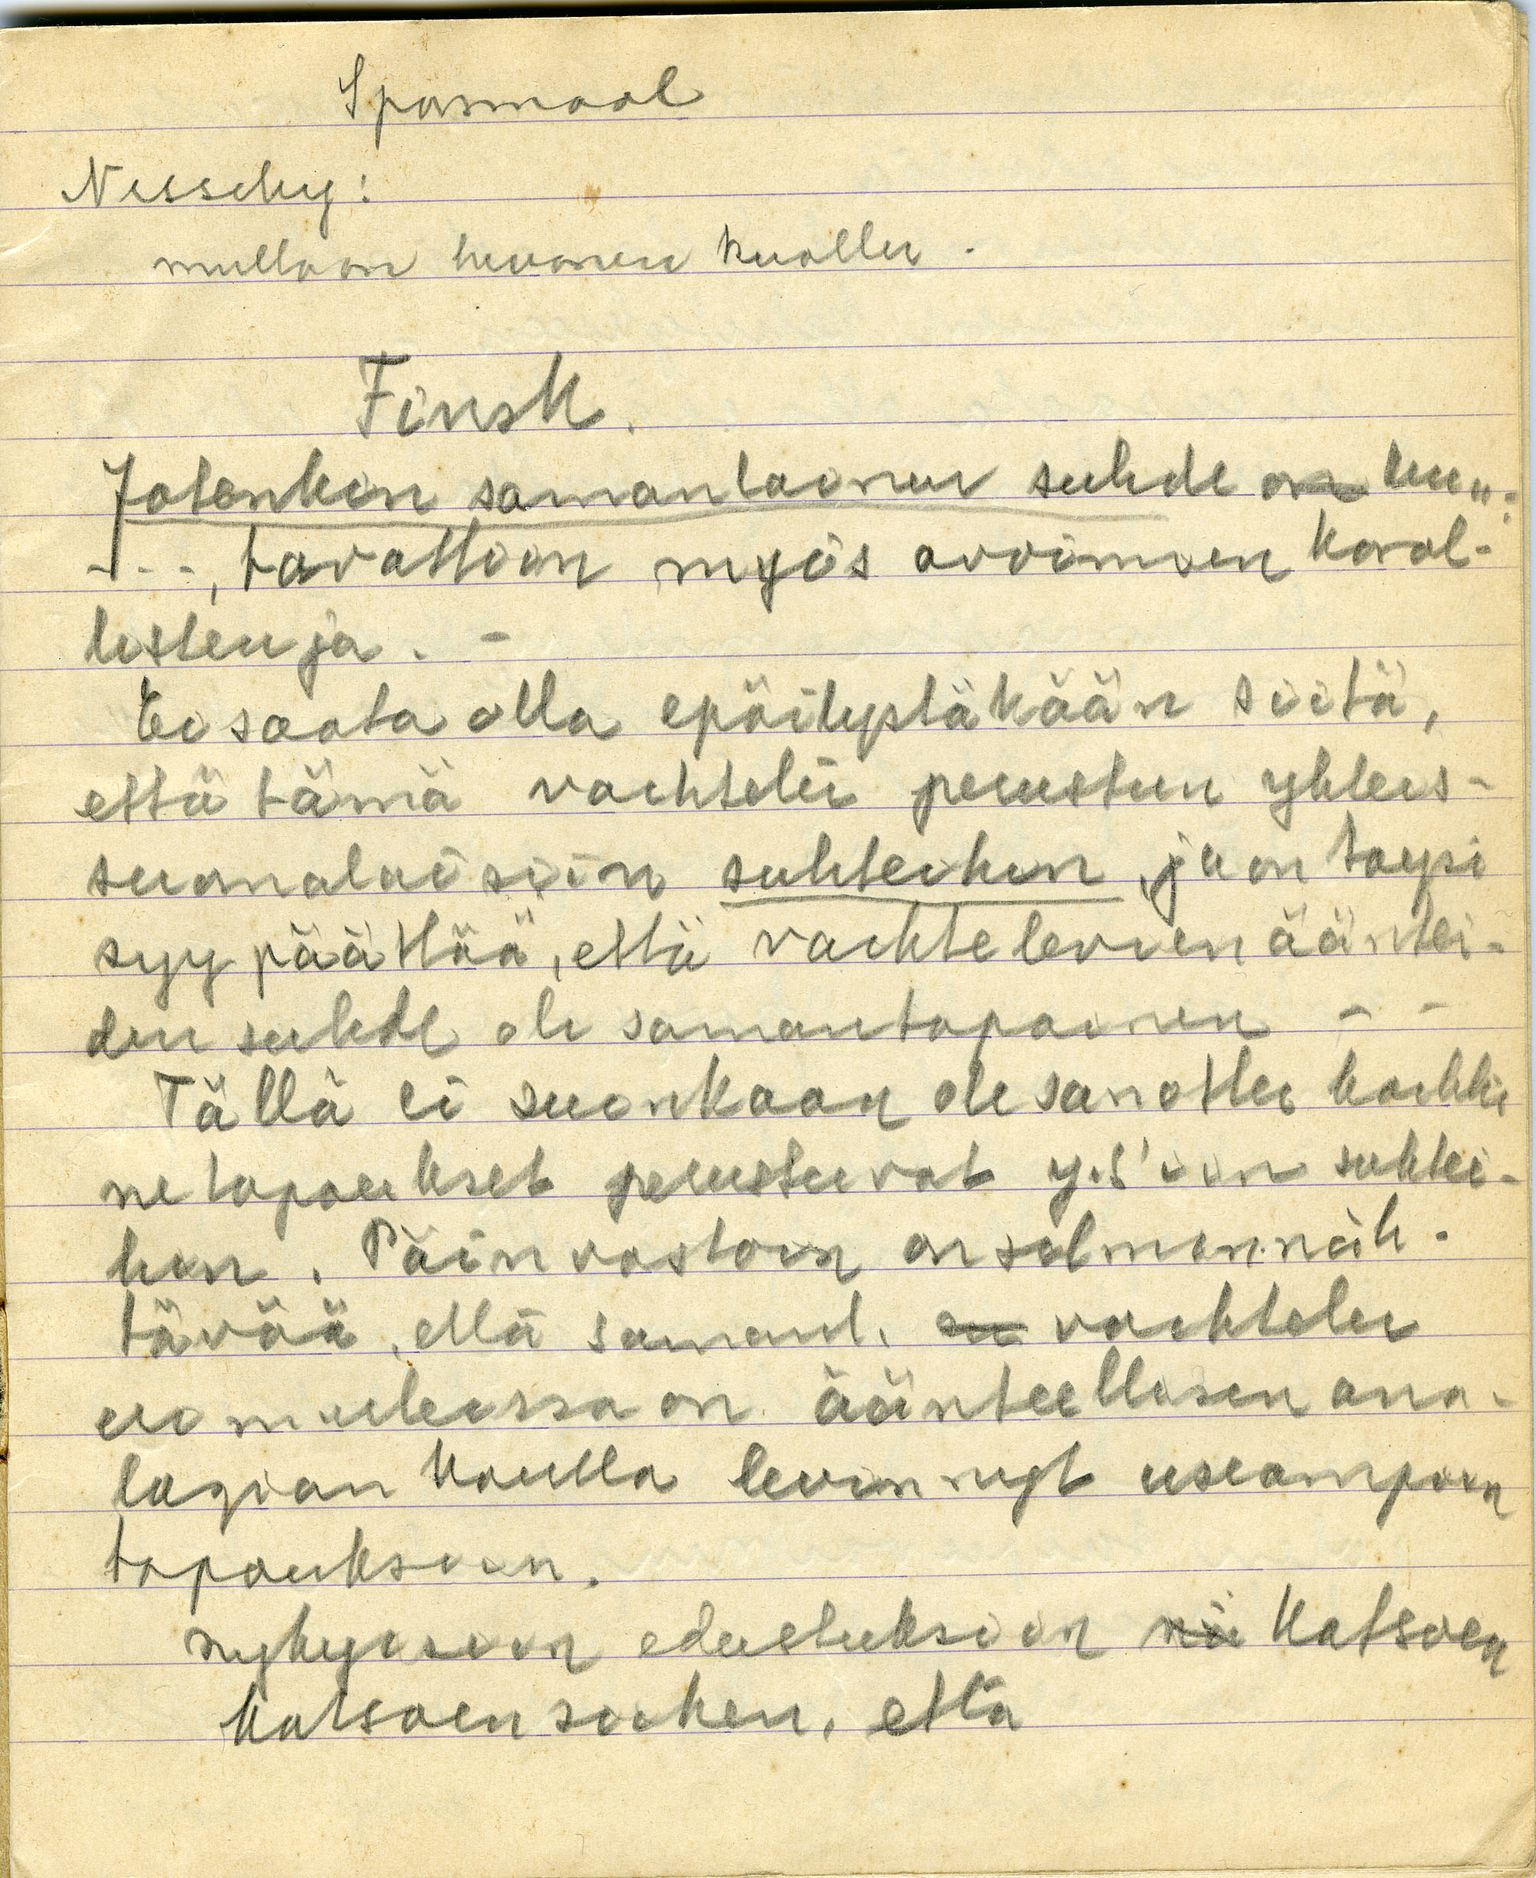 Sparmaal
Nesseby:
mullaan hevonen kuollu.
Finsk.
Jotenkin samanlainen suhde on ku„:
---, tavattiin myös arvimien karal-
listen ja. –
Ei saata olla epäilystäkään siitä,
että tämä vaihtelu perustuu yhteis-
suomalaisiin suhteihin, ja on täysi
syy päättää, että vaihtelevienääntei-
den suhde oli samantapainen – –
Tällä ei suinkaan ole sanottu kaikki
ne tapaukset perustuvat y.s'iin suhtei-
hin. Päinvastoin on silminnäh-
tävää, että samanl. su vaihtelu
uomuleissa on äänteellisen ana-
logian kautta levinnyt useampiin
tapauksiin.
nykyisiin edustuksiin nä katsoen
katsoen siihen, että